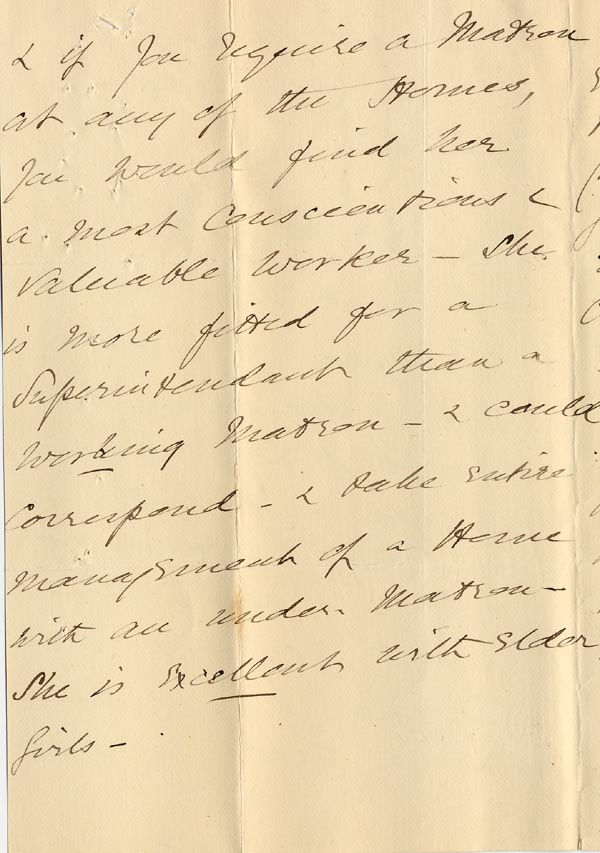 & if you require a Matron
at any of the Homes,
you would find her
a most conscientious &
valuable worker - She
is more fitted for a
Superintendant than a
working Matron - & could
correspond - & take entire
management of a Home
with an under Matron -
She is excellent with Elder
girls -